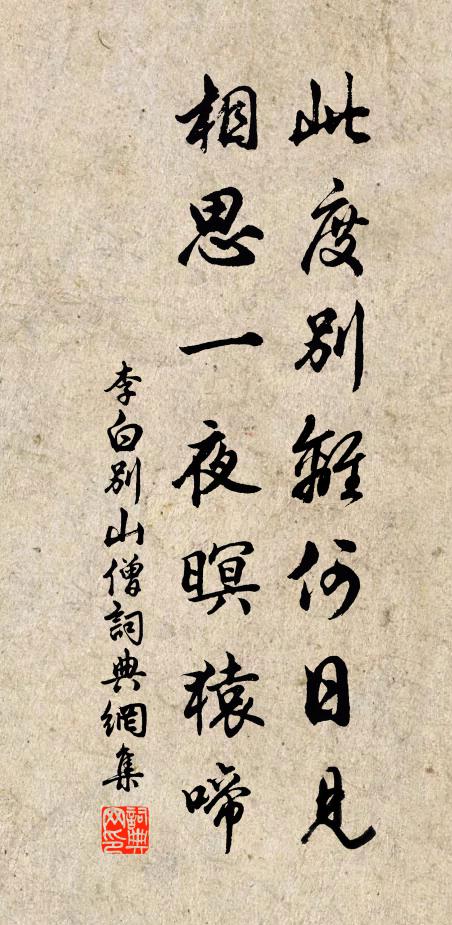 此度別離何日見
相思一夜暝猿啼
李白別山僧詞典網集
詞典網印